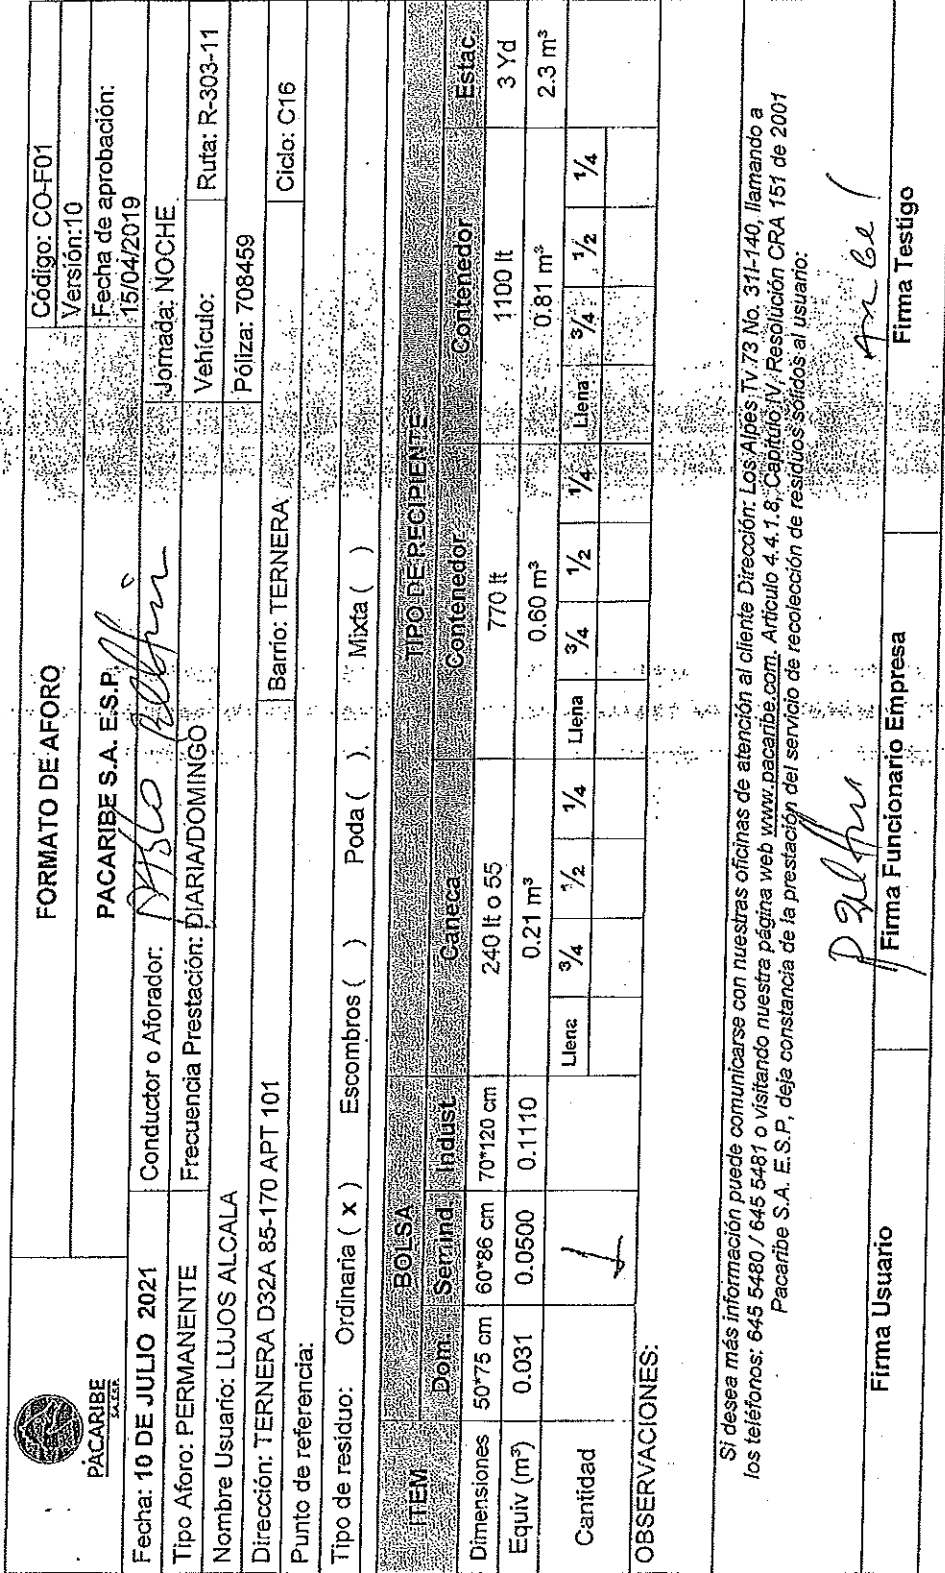 PACARIBE
S.A. E.S.P.
FORMATO DE AFORO
PACARIBE S.A. E.S.P.
Código: CO-F01
Versión:10
Fecha de aprobación:
15/04/2019
Fecha: 10 DE JULIO 2021
Conductor o Aforador:
Jornada: NOCHE
Tipo Aforo: PERMANENTE
Frecuencia Prestación: DIARIA/DOMINGO
Vehículo:
Ruta: R-303-11
Nombre Usuario: LUJOS ALCALA
Póliza: 708459
Dirección: TERNERA D32A 85-170 APT 101
Barrio: TERNERA
Ciclo: C16
Punto de referencia:
Tipo de residuo: Ordinaria ( x ) Escombros ( ) Poda ( ) Mixta ( )
ITEM BOLSA TIPO DE RECIPIENTE
Dom. Semind. Indust. Caneca Contenedor Contenedor Estac.
Dimensiones 50*75 cm 60*86 cm 70*120 cm 240 lt o 55 770 lt 1100 lt 3 Yd
Equiv (m³) 0.031 0.0500 0.1110 0.21 m³ 0.60 m³ 0.81 m³ 2.3 m³
Cantidad 1 Llena ¾ ½ ¼ Llena ¾ ½ ¼ Llena ¾ ½ ¼
OBSERVACIONES:
Si desea más información puede comunicarse con nuestras oficinas de atención al cliente Dirección: Los Alpes Tv 73 No. 31I-140, llamando a
los teléfonos: 645 5480 / 645 5481 o visitando nuestra página web www.pacaribe.com. Artículo 4.4.1.8, Capítulo IV, Resolución CRA 151 de 2001
Pacaribe S.A. E.S.P, deja constancia de la prestación del servicio de recolección de residuos sólidos al usuario:
Firma Usuario
Firma Funcionario Empresa
Firma Testigo